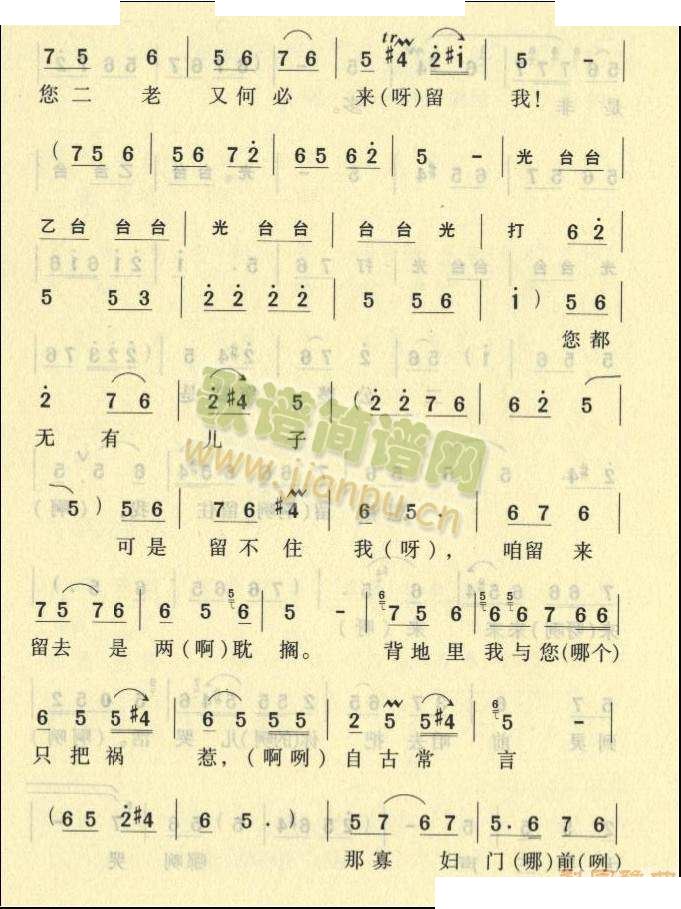 7 5 6 | 5 6 7 6 | 5 tr #4 2 #i | 5 - |
您二 老 又何必 来(呀)留 我!
( 7 5 6 | 5 6 7 2 | 6 5 6 2 | 5 - | 光 台台 |
乙台 台台 | 光 台台 | 台台 光 | 打 6 2 |
5 5 3 | 2 2 2 2 | 5 5 6 | i ) 5 6 |
您都
2 7 6 | 2 #4 5 | ( 2 2 7 6 | 6 2 5 |
无 有 儿 子
歌谱简谱网
www.jianpu.cn
5 ) 5 6 | 7 6 #4 | 6 5. | 6 7 6 |
可是 留不住 我(呀), 咱留 来
7 5 7 6 | 6 5 5 6 | 5 - | 6 7 5 6 | 6 6 6 7 6 6 |
留去 是 两(啊)耽 搁。 背地里 我与您(哪个)
6 5 5 #4 | 6 5 5 5 | 2 5 5 #4 | 6 5 - |
只把祸 惹,(啊咧) 自古常 言
( 6 5 2 #4 | 6 5. ) | 5 7 6 7 | 5. 6 7 6 |
那寡 妇 门(哪)前(咧)